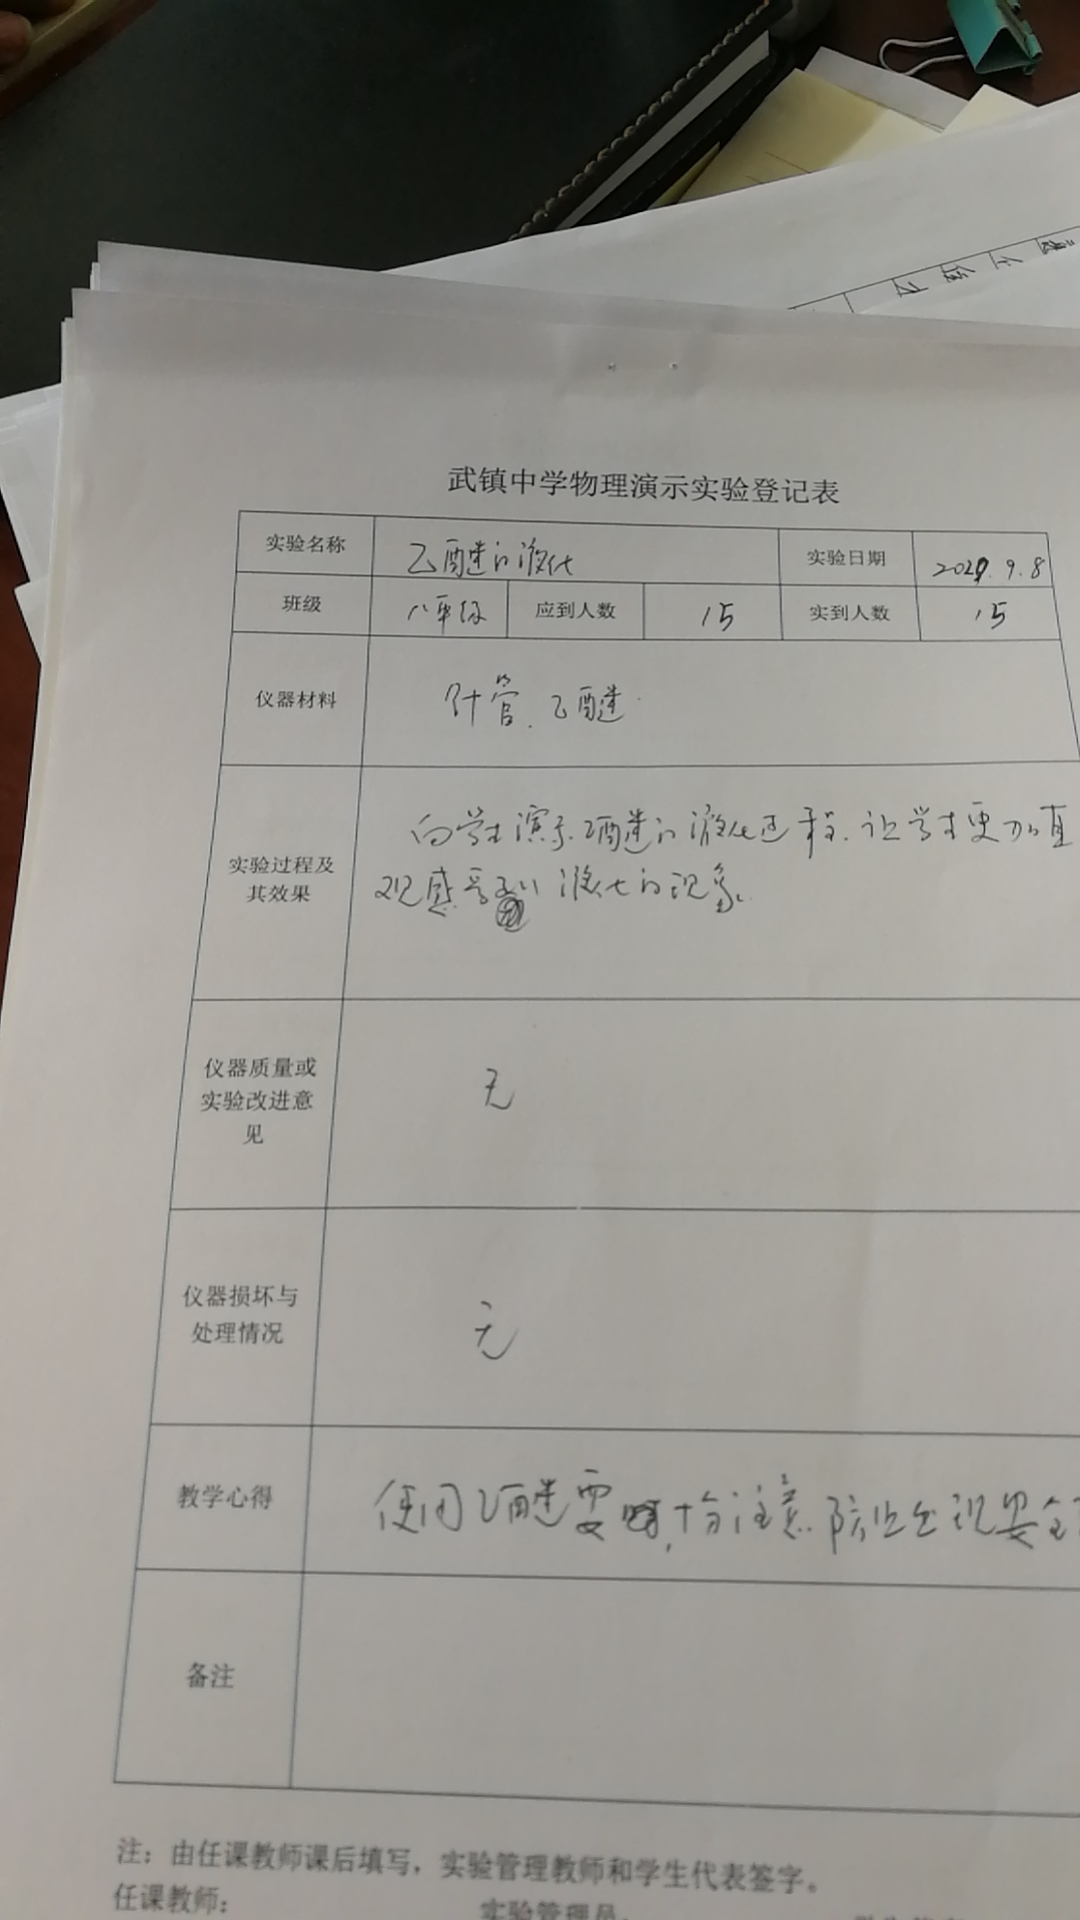 武镇中学物理演示实验登记表
实验名称 乙醚的液化 实验日期 2021.9.8
班级 八年级 应到人数 15 实到人数 15
仪器材料 针管、乙醚
向学生演示乙醚的液化过程.让学生更加直
实验过程及
其效果
观感受到液化的现象.
仪器质量或
实验改进意
见
无
仪器损坏与
处理情况
无
教学心得 使用乙醚要,十分注意.防止出现安全
备注
注：由任课教师课后填写，实验管理教师和学生代表签字。
任课教师： 实验管理员：